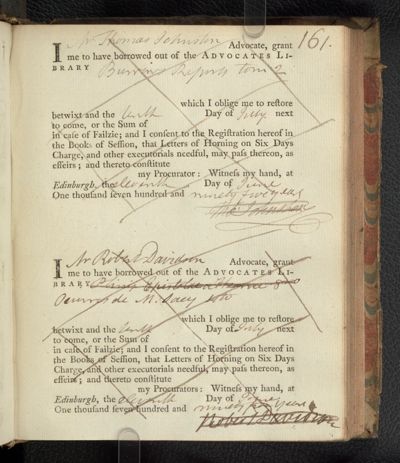 161.
I Mr Thomas Johnston Advocate, grant
me to have borrowed out of the ADVOCATES LI-
BRARY Burrows Reports tom 2
which I oblige me to restore
betwixt and the tenth Day of July next
to come, or the Sum of
in case of Failzie; and I consent to the Registration hereof in
the Books of Session, that Letters of Horning on Six Days
Charge, and other executorials needful, may pass thereon, as
effeirs; and thereto constitute
my Procurator: Witness my hand, at
Edinburgh, the eleventh Day of June
One thousand seven hundred and ninety five years
Tho Johnston
I Mr Robert Davidson Advocate, grant
me to have borrowed out of the ADVOCATES LI-
BRARY
Oeuvres de M.
which I oblige me to restore
betwixt and the tenth Day of July next
to come, or the Sum of
in case of Failzie; and I consent to the Registration hereof in
the Books of Session, that Letters of Horning on Six Days
Charge, and other executorials needful, may pass thereon, as
effeirs; and thereto constitute
my Procurators: Witness my hand, at
Edinburgh, the eleventh Day of June
One thousand seven hundred and ninety five years
Robert Davidson